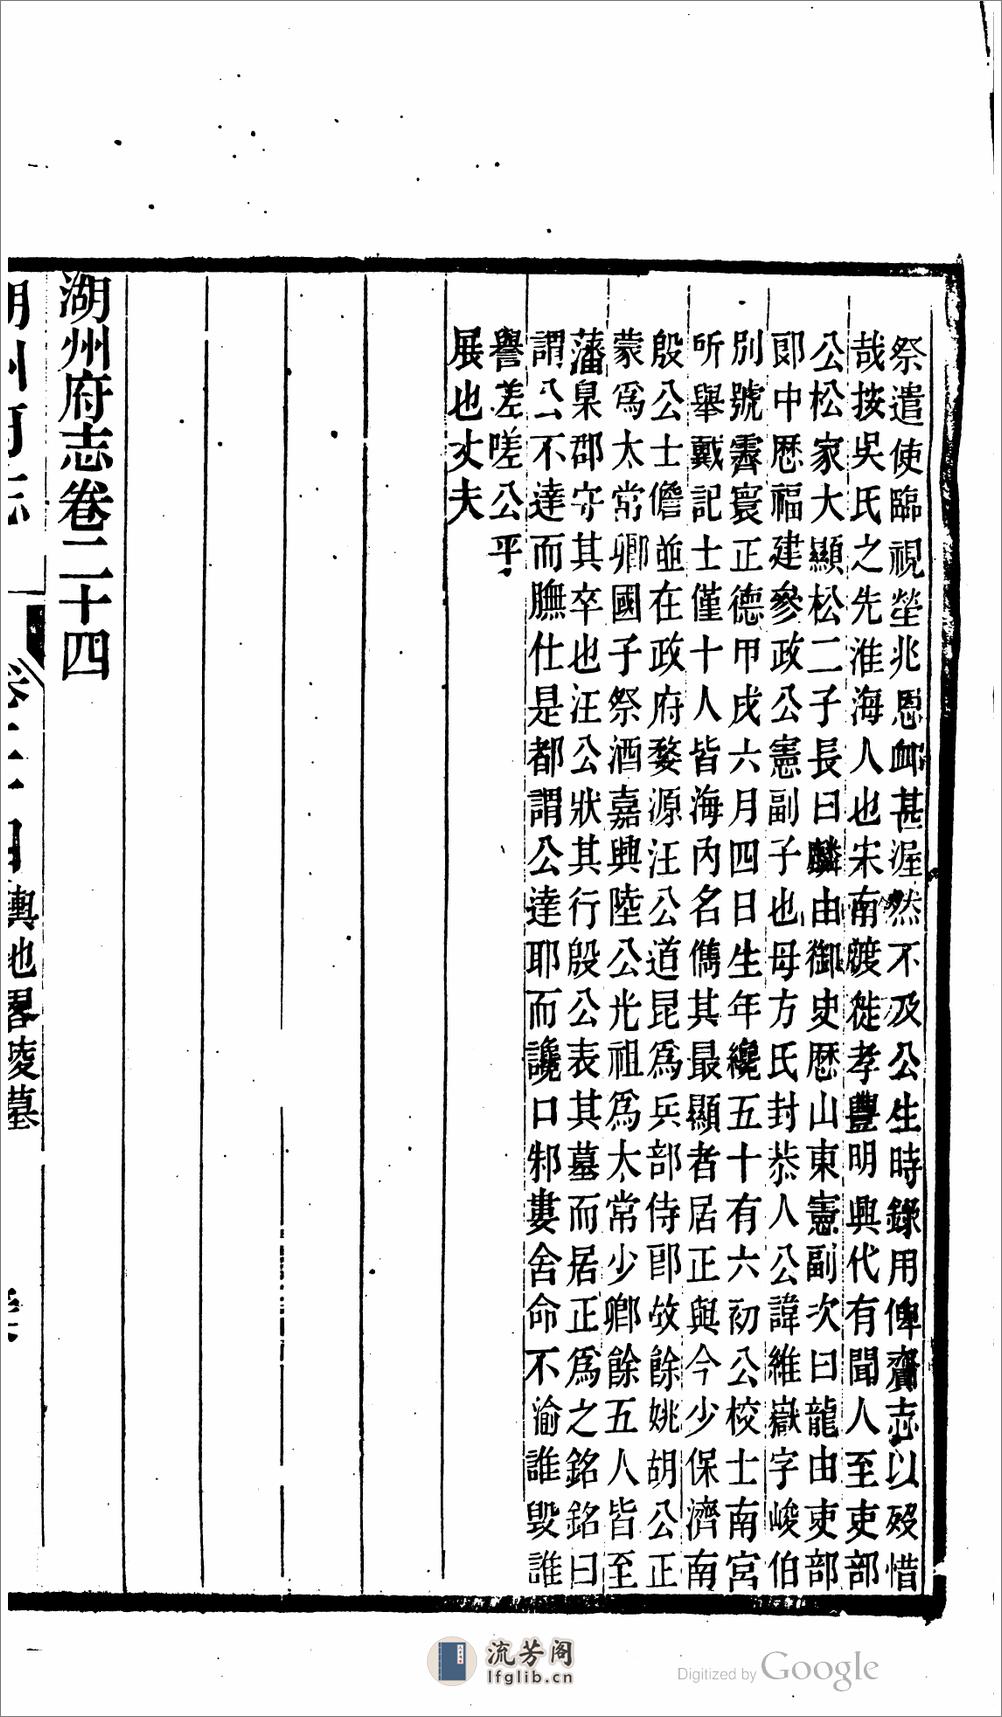 祭遣使臨視塋兆恩卹甚渥然不及公生時錄用俾齎志以歿惜
哉按吳氏之先淮海人也宋南渡徙孝豐明興代有聞人至吏部
公松家大顯松二子長曰麟由御史歷山東憲副次曰龍由吏部
郎中歷福建參政公憲副子也母方氏封恭人公諱維嶽字峻伯
別號霽寰正德甲戌六月四日生年纔五十有六初公校士南宮
所舉戴記士僅十人皆海內名儁其最顯者居正與今少保濟南
殷公士儋並在政府婺源汪公道昆為兵部侍郎故餘姚胡公正
蒙為太常卿國子祭酒嘉興陸公光祖為太常少卿餘五人皆至
藩臬郡守其卒也汪公狀其行殷公表其墓而居正為之銘銘曰
謂公不達而膴仕是都謂公達耶而讒口邾婁舍命不渝誰毀誰
譽差嗟公乎
展也丈夫
湖州府志卷二十四
湖州府志
卷二十四
輿地畧陵墓
流芳阁
lfglib.cn
Digitized by Google